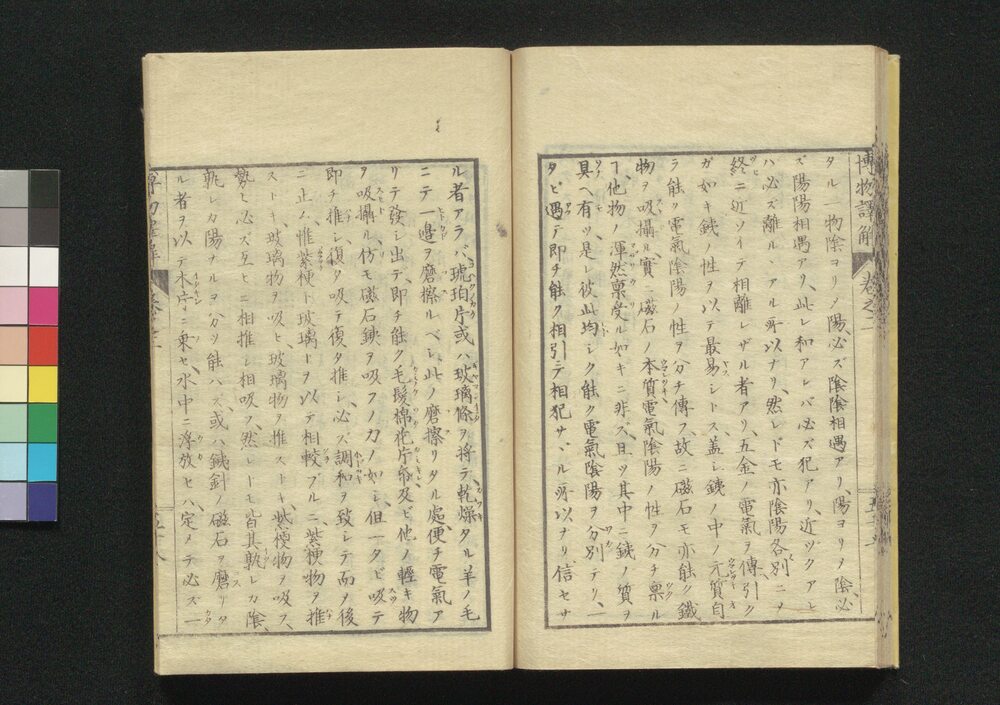 博物譯解 卷之二
タル一物陰ヨリノ陽、必ズ陰陰相遇アリ、陽ヨリノ陰、必
ズ陽陽相遇アリ、此レ和アレバ必ズ犯アリ、近ヅクアレ
ハ必ズ離ル、アル所以ナリ、然レドモ亦陰陽各別ニヲ
終ニ近ソイテ相離レザル者アリ、五金ノ電氣ヲ傳引ク
ガ如キ鐵性ヲ以テ最易シトス、蓋シ鐵ノ中ノ元質自
ラ能ク電氣陰陽ノ性ヲ分チ傳フ、故ニ磁石モ亦能ク鐵
物ヲ吸攝ル、實ニ磁石ノ本質電氣陰陽ノ性ヲ分チ稟ル
丁、他物ノ渾然稟受ル如キニ非ズ、且ツ其中ニ鐵ノ質ヲ
具ヘ有ツ、是レ彼此均シク能ク電氣陰陽ヲ分別テリ、一
タビ遇テ即チ能ク相引テ相犯サヾル所以ナリ信セサ
ル者アラバ琥珀片或ハ玻璃條ヲ將テ乾燥タル羊ノ毛
ニテ一邉ヲ磨擦ルベシ、此ノ磨擦リタル處便チ電氣ア
リテ發シ出テ、即チ能ク毛髮棉花片帋及ビ他ノ輕キ物
ヲ吸攝ル、仿モ磁石鐵ヲ吸フノ力ノ如シ、但一タビ吸テ
即チ推シ復タ吸テ復タ推シ、必ズ調和ヲ致シテ而ノ後
ニ止ム、惟紫梗ト玻璃トヲ以テ相較ブルニ、紫梗物ヲ推
ストキ、玻璃物ヲ吸ヒ、玻璃物ヲ推ストキ、紫梗物ヲ吸フ、
勢ヒ必ズ互ヒニ相推シ相吸フ、然レトモ皆其孰レカ陰、
孰レカ陽ナルヲ分ツ能ハズ、或ハ鐵針ノ磁石ヲ磨リタ
ル者ヲ以テ木片ニ乗セ、水中ニ浮放セハ、定メテ必ズ一